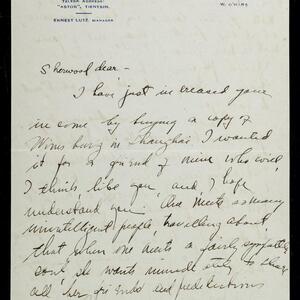 "ASTOR", TIENTSIN.
ERNEST LUTZ MANAGER
Sherwood dear –
I have just increased your
income by buying a copy of
Winesburg in Shanghai. I wanted
it for a friend of mine who will,
I think, like you, and, I hope,
understand you. One meets so many
unintelligent people travelling about,
that when one meets a fairly sympathetic
soul, she wants immediately to share
all her friends and predilections